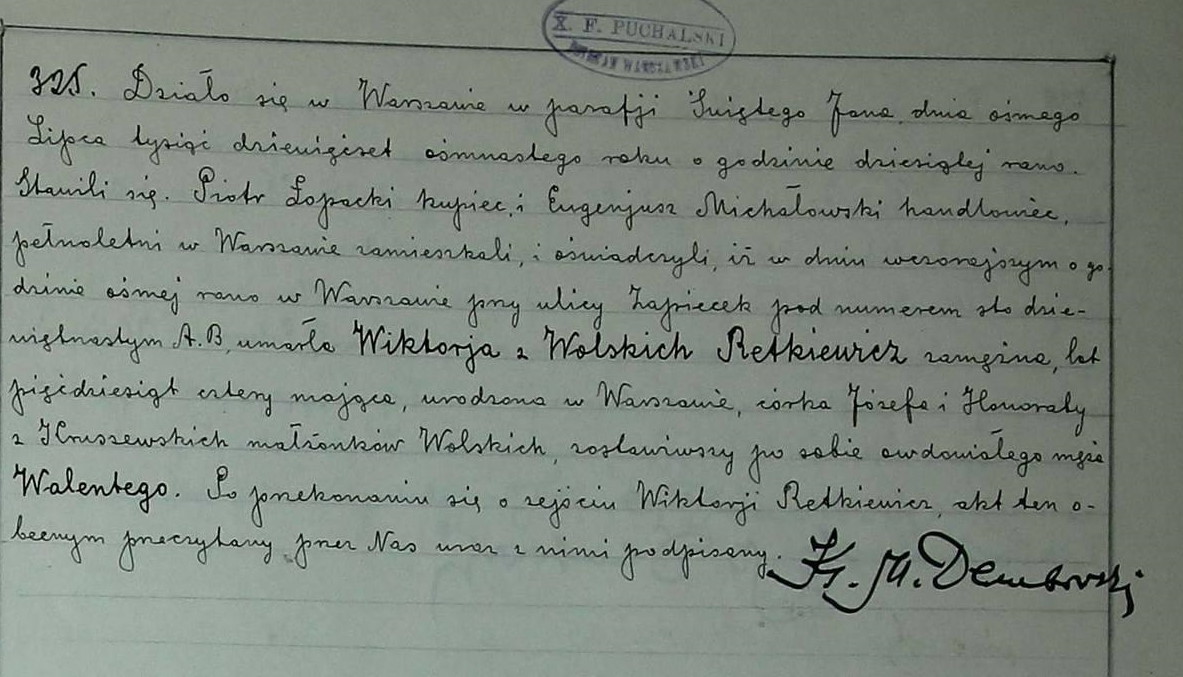 X. F. PUCHALSKI
325. Działo się w Warszawie w parafji Świętego Jana, dnia ósmego
Lipca tysiąc dziewięćset ośmnastego roku o godzinie dziesiątej rano.
Stawili się. Piotr Łopacki kupiec, i Eugenjusz Michałowski handlowiec,
pełnoletni w Warszawie zamieszkali, i oświadczyli, iż w dniu wczorajszym o go-
dzinie ósmej rano w Warszawie przy ulicy Zapiecek pod numerem sto dzie-
więtnastym A.B, umarła Wiktorja z Wolskich Retkiewicz zamężna, lat
pięćdziesiąt cztery mająca, urodzona w Warszawie, córka Józefa i Honoraty
z Kruszewskich małżonków Wolskich, zostawiwszy po sobie owdowiałego męża
Walentego. Po przekonaniu się o zejściu Wiktorji Retkiewicz, akt ten o-
becnym przeczytany przez Nas wraz z nimi podpisany. Ks. M. Dembowski